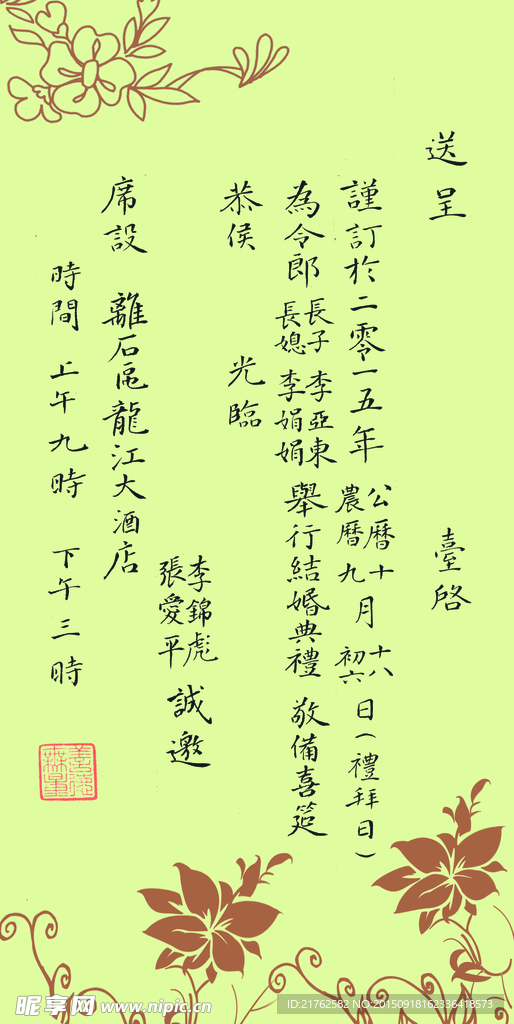 送呈 臺啓
謹訂於二零一五年 公曆十 農曆九 月 十八 初六 日(禮拜日)
為令郎 長子 李亞東 長媳 李娟娟 舉行結婚典禮 敬備喜筵
恭侯 光臨
李錦彪 張愛平 誠邀
席設 離石區龍江大酒店
時間 上午九時 下午三時
昵享网 www.nipic.cn
ID:21762582 NO:20150918162336418573